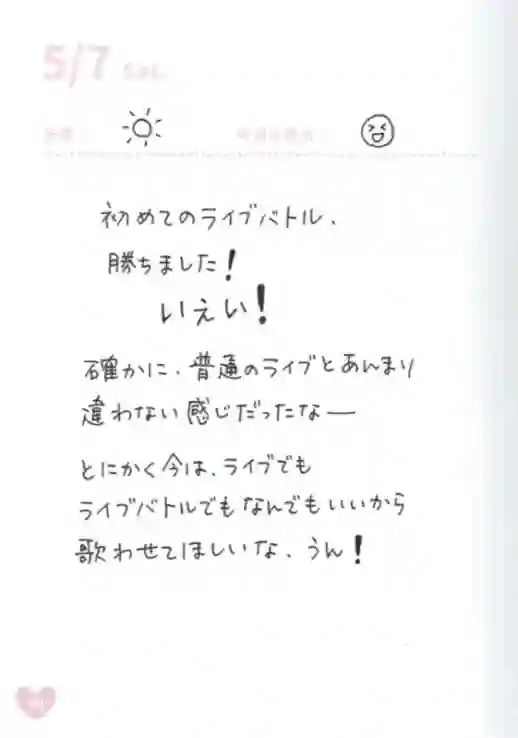 5/7 Sat.
初めてのライブバトル、
勝ちました!
いぇい!
確かに、普通のライブとあんまり
違わない感じだったなー
とにかく今は、ライブでも
ライブバトルでもなんでもいいから
歌わせてほしいな、うん!